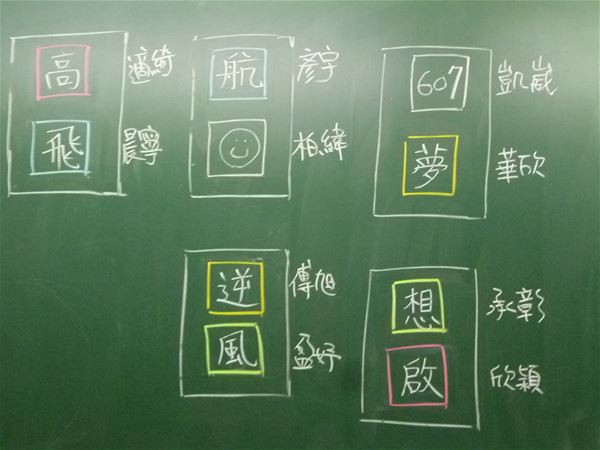 高 適綺
飛 晨寧
航 彥宇
柏緯
607 凱崴
夢 華欣
逆 傅旭
風 盈妤
想 承彰
啟 欣穎